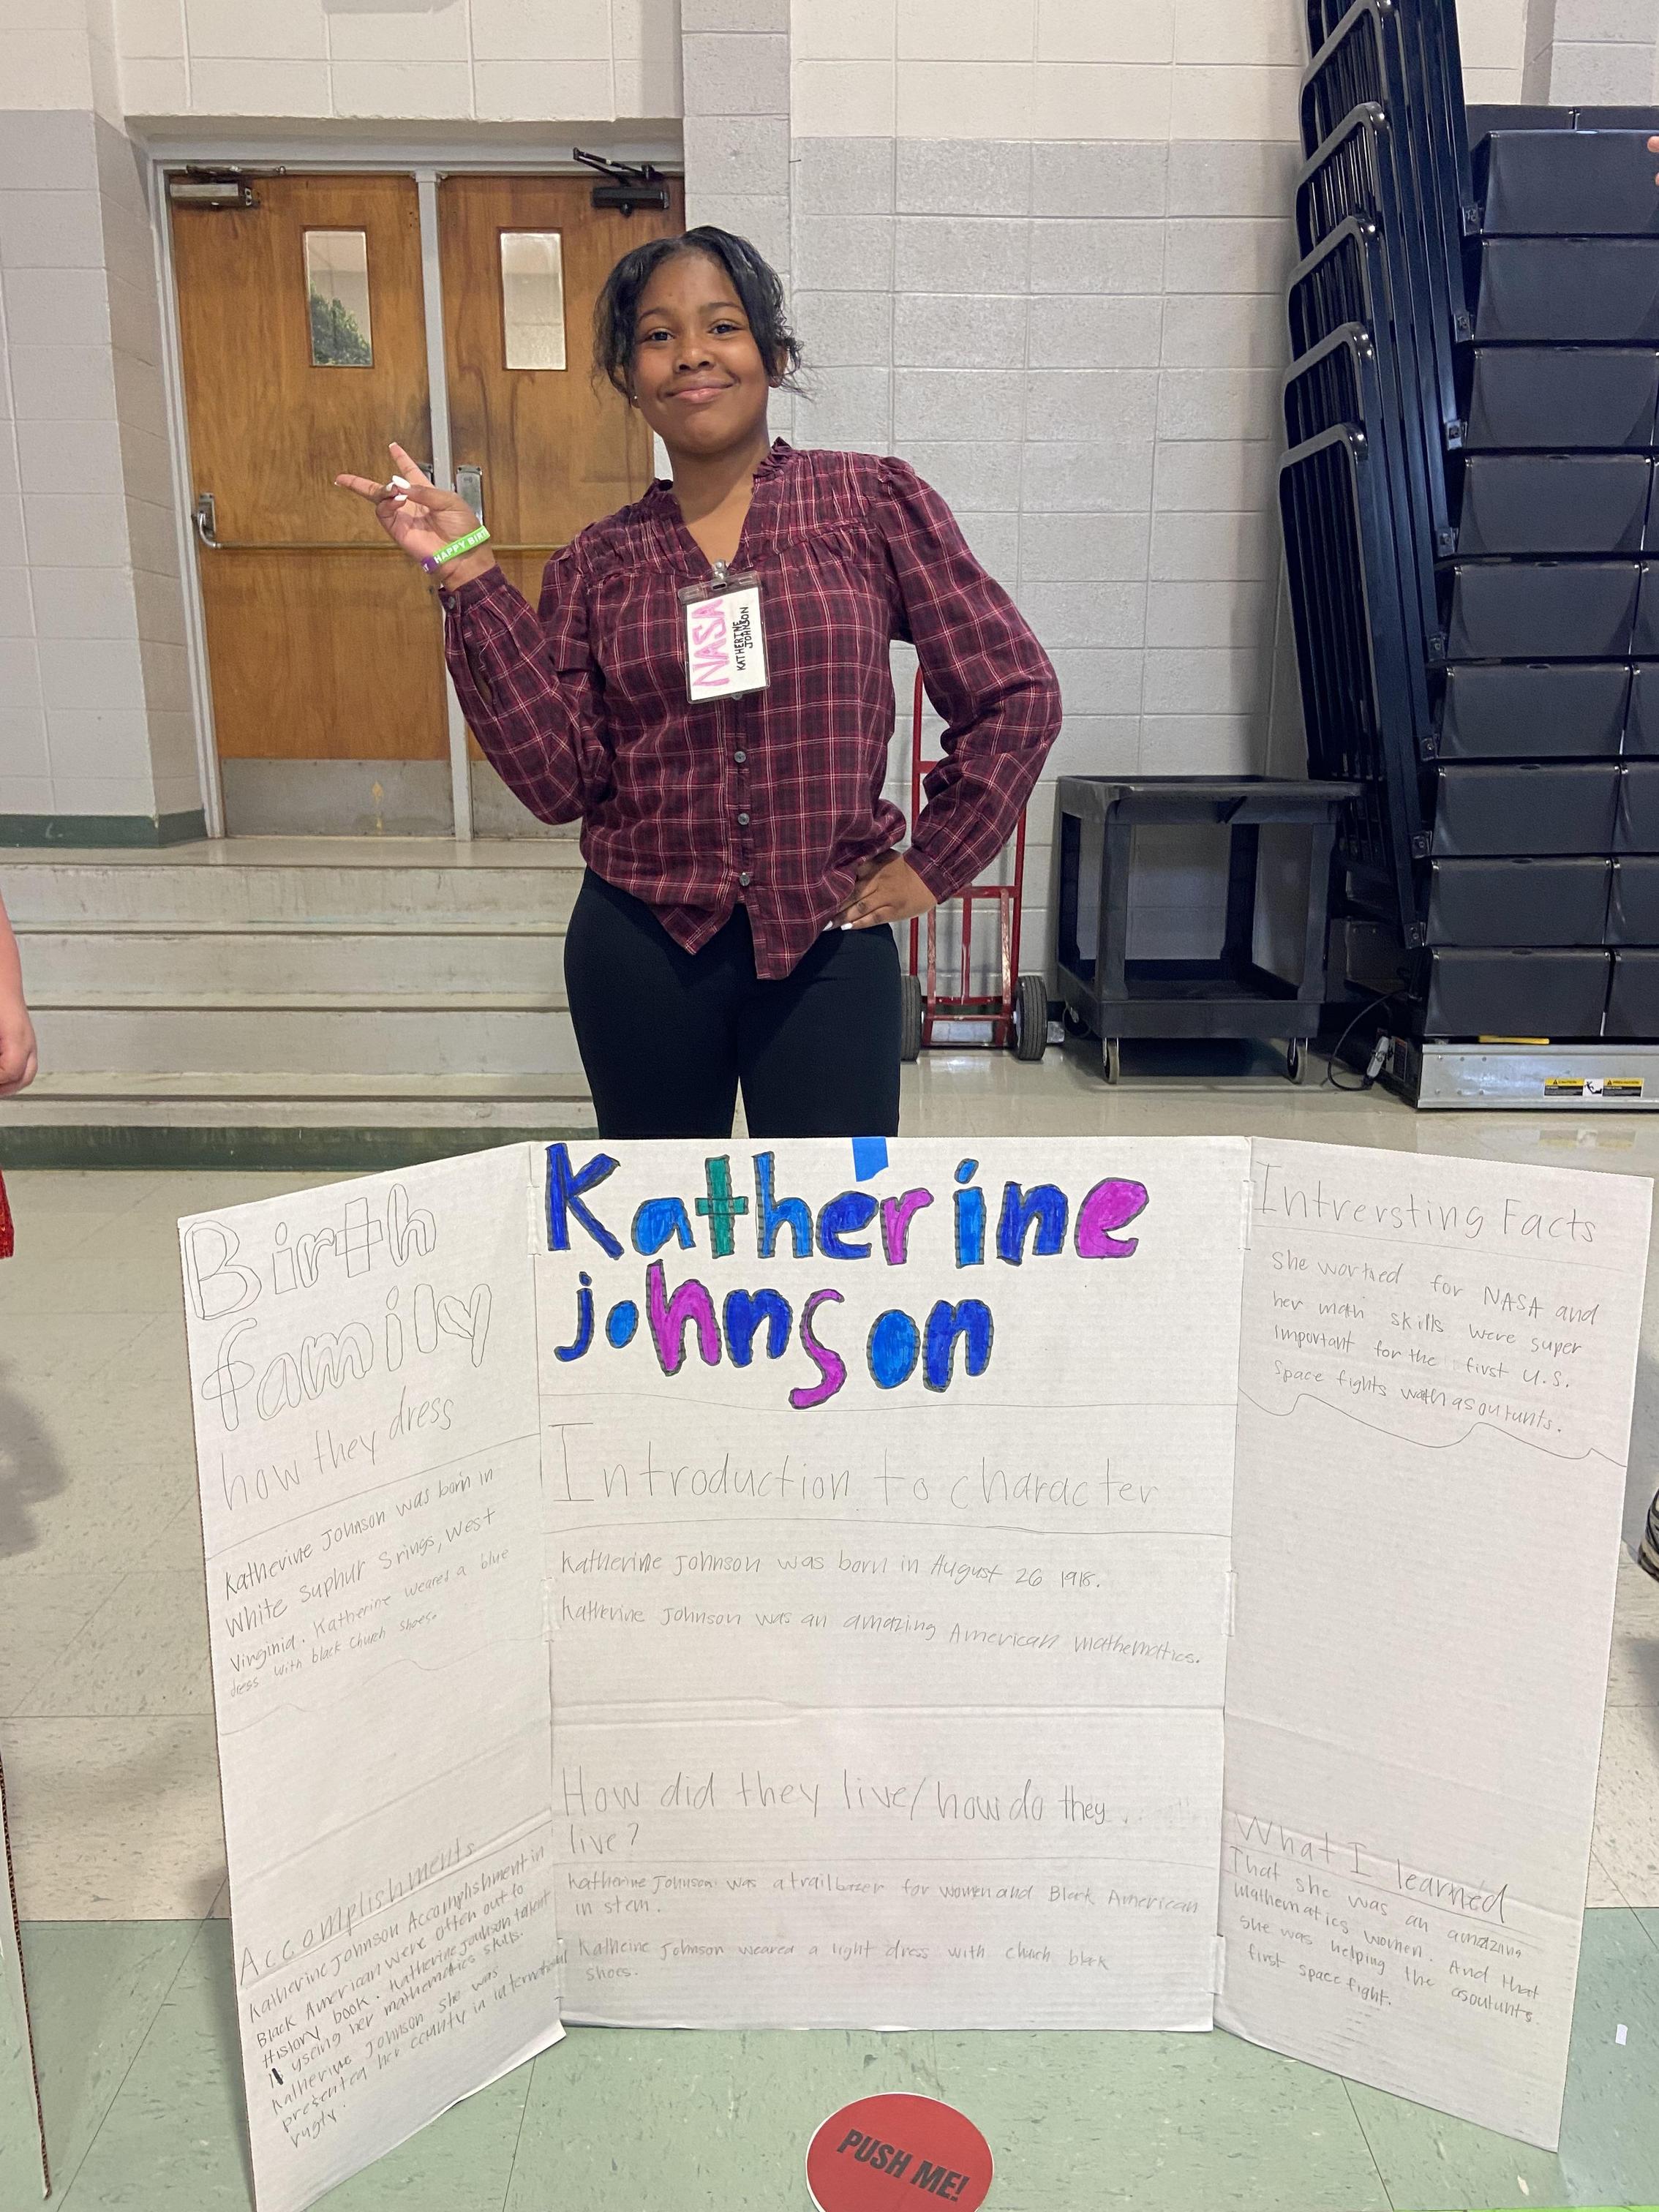 HAPPY BIR
NASA
KATHERINE
JOHNSON
Birth
family
how they dress
Katherine Johnson was born in
White Suphur Srings, West
Virginia. Katherine weared a blue
dress with black church shoes.
Accomplishments
Katherine Johnson Accomplishment in
Black American were often out to
History book. Katherine Johnson talent
in useing her mathematics skills.
Katherine Johnson she was
presented her county in international
rugty.
Katherine
johnson
Introduction to character
Katherine Johnson was born in August 26 1918.
Katherine Johnson was an amazing American mathematics.
How did they live/how do they
live?
Katherine Johnson was a trailbazer for women and Black American
in stem.
Katheine Johnson weared a light dress with church blak
shoes.
Intrersting Facts
She worked for NASA and
her math skills were super
important for the first U.S.
Space fights with asoutunts.
What I learned
That she was an amazing
mathematics women. And that
she was helping the asoutunts
first space fight.
PUSH ME!